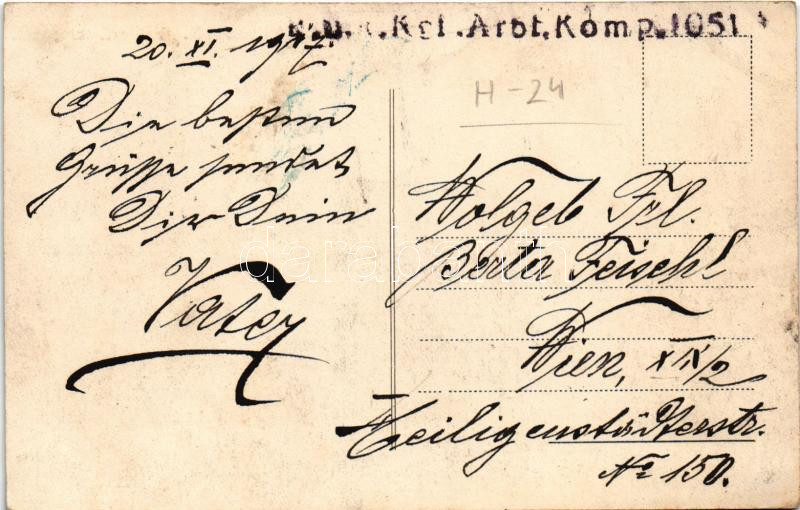 K.u.k. Kgf. Arbt. Komp. 1051
20. XI. 1917.
Die besten
Grüsse sendet
Dir Dein
Vater
H-24
Wolgeb Frl.
Berta Feischl
Wien, XIX/2
Heiligenstädterstr.
No 150.
darabanth